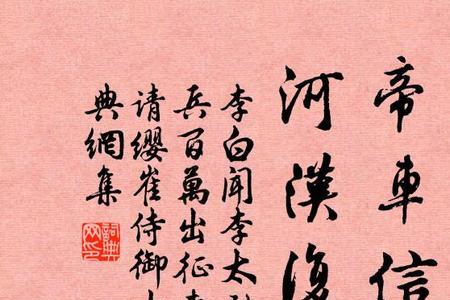 帝車信
河漢復
李白聞李太
兵百萬出征
請纓崔侍御
典網集
詞典網印